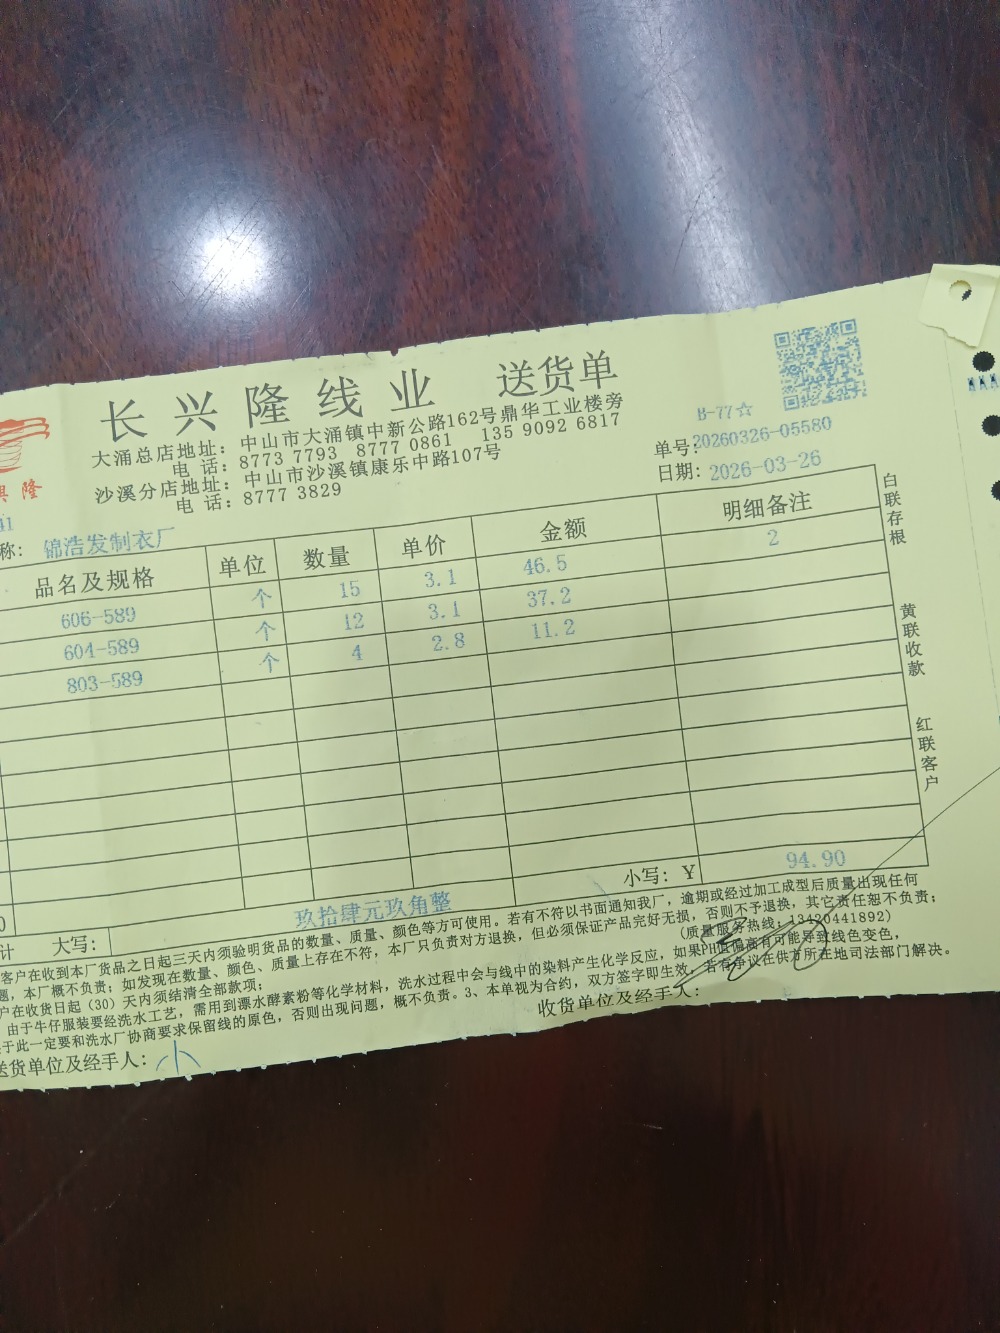 长兴隆线业 送货单
大涌总店地址：中山市大涌镇中新公路162号鼎华工业楼旁
电 话：8773 7793 8777 0861 135 9092 6817
沙溪分店地址：中山市沙溪镇康乐中路107号
电 话：8777 3829
B-77☆
单号：20260326-05580
日期：2026-03-26
興隆
称：锦浩发制衣厂
品名及规格 单位 数量 单价 金额 明细备注
606-589 个 15 3.1 46.5 2
604-589 个 12 3.1 37.2
803-589 个 4 2.8 11.2
白联存根
黄联收款
红联客户
计 大写：玖拾肆元玖角整 小写：Y 94.90
客户在收到本厂货品之日起三天内须验明货品的数量、质量、颜色等方可使用。若有不符以书面通知我厂，逾期或经过加工成型后质量出现任何
题，本厂概不负责；如发现在数量、颜色、质量上存在不符，本厂只负责对方退换，但必须保证产品完好无损，否则不予退换，其它责任恕不负责；
户在收货日起（30）天内须结清全部款项；
(质量服务热线：13420441892)
由于牛仔服装要经洗水工艺，需用到漂水酵素粉等化学材料，洗水过程中会与线中的染料产生化学反应，如果PH值偏高有可能导致线色变色，
于此一定要和洗水厂协商要求保留线的原色，否则出现问题，概不负责。3、本单视为合约，双方签字即生效，若有争议在供方所在地司法部门解决。
送货单位及经手人：小
收货单位及经手人：